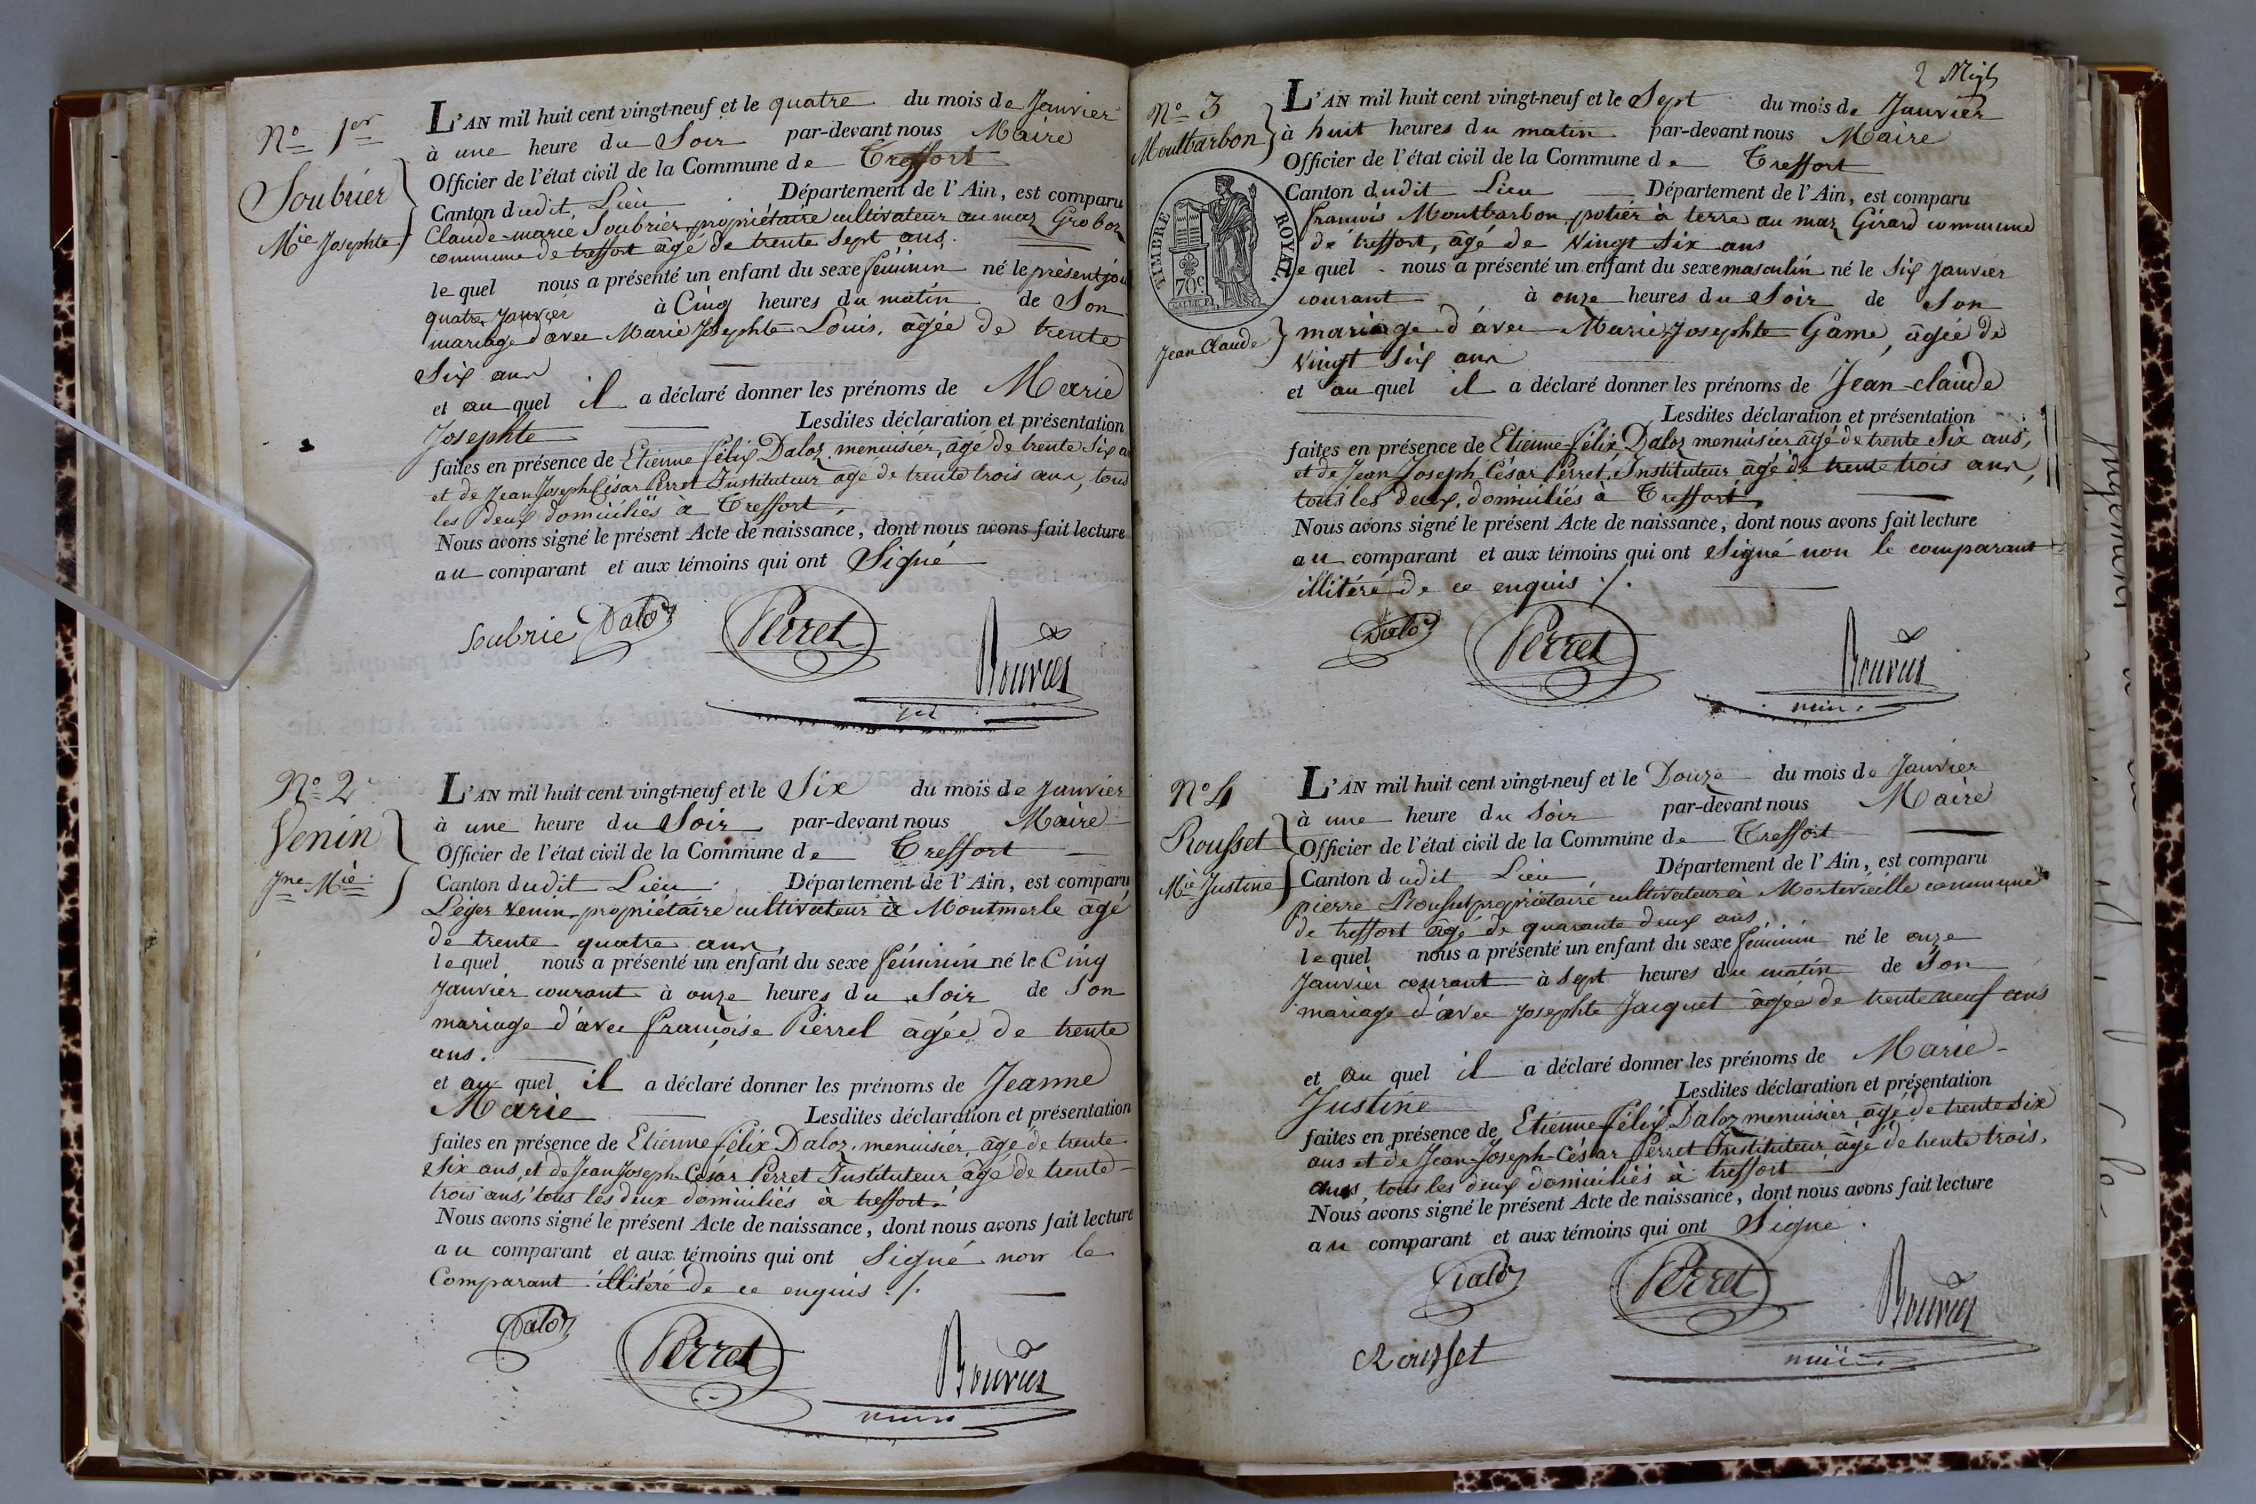 N° 1er
Soubrier
Mie Josephte
L'AN mil huit cent vingt-neuf et le quatre du mois de Janvier
à une heure du Soir par-devant nous Maire
Officier de l'état civil de la Commune de Treffort
Canton dudit Lieu Département de l'Ain, est comparu
Claude-marie Soubrier propriétaire cultivateur au maz Groboz
commune de treffort âgé de trente Sept ans.
lequel nous a présenté un enfant du sexe féminin né le présent jour
quatre Janvier à Cinq heures du matin de Son
mariage d'avec Marie Josephte Louis, âgée de trente
Six ans
et au quel il a déclaré donner les prénoms de Marie
Josephte Lesdites déclaration et présentation
faites en présence de Etienne félix Daloz menuisier, âgé de trente Six ans
et de Jean Joseph César Perret Instituteur âgé de trente trois ans, tous
les deux domiciliés à Treffort.
Nous avons signé le présent Acte de naissance, dont nous avons fait lecture
au comparant et aux témoins qui ont Signé
Soubrie Daloz Perret Bouvier
N° 2
Venin
Jne Mie
L'AN mil huit cent vingt-neuf et le Six du mois de Janvier
à une heure du Soir par-devant nous Maire
Officier de l'état civil de la Commune de Treffort
Canton dudit Lieu Département de l'Ain, est comparu
Léger Venin propriétaire cultivateur à Montmerle âgé
de trente quatre ans,
lequel nous a présenté un enfant du sexe féminin né le Cinq
Janvier courant à onze heures du Soir de Son
mariage d'avec françoise Pierrel âgée de trente
ans.
et au quel il a déclaré donner les prénoms de Jeanne
Marie Lesdites déclaration et présentation
faites en présence de Etienne félix Daloz, menuisier, âgé de trente
Six ans, et de Jean Joseph César Perret Instituteur âgé de trente
trois ans, tous les deux domiciliés à treffort.
Nous avons signé le présent Acte de naissance, dont nous avons fait lecture
au comparant et aux témoins qui ont Signé non le
Comparant illitéré de ce enquis ./.
Daloz Perret Bouvier
N° 3
Montbarbon
TIMBRE ROYAL
70c
Jean Claude
L'AN mil huit cent vingt-neuf et le Sept du mois de Janvier
à huit heures du matin par-devant nous Maire
Officier de l'état civil de la Commune de Treffort
Canton dudit Lieu Département de l'Ain, est comparu
françois Montbarbon potier à terre au maz Girard commune
de treffort, âgé de Vingt Six ans
lequel nous a présenté un enfant du sexe masculin né le Six Janvier
courant à onze heures du Soir de Son
mariage d'avec Marie Josephte Game, âgée de
Vingt Six ans
et au quel il a déclaré donner les prénoms de Jean-claude
Lesdites déclaration et présentation
faites en présence de Etienne-félix Daloz menuisier âgé de trente Six ans,
et de Jean Joseph César Perret, Instituteur âgé de trente trois ans,
tous les deux domiciliés à Treffort.
Nous avons signé le présent Acte de naissance, dont nous avons fait lecture
au comparant et aux témoins qui ont Signé non le comparant
illitéré de ce enquis ./.
Daloz Perret Bouvier
N° 4
Rousset
Mie Justine
L'AN mil huit cent vingt-neuf et le Douze du mois de Janvier
à une heure du Soir par-devant nous Maire
Officier de l'état civil de la Commune de Treffort
Canton dudit Lieu Département de l'Ain, est comparu
pierre Rousset propriétaire cultivateur à Montevieille commune
de treffort âgé de quarante deux ans,
lequel nous a présenté un enfant du sexe féminin né le onze
Janvier courant à Sept heures du matin de Son
mariage d'avec Josephte Jacquet âgée de trente neuf ans
et au quel il a déclaré donner les prénoms de Marie-
Justine Lesdites déclaration et présentation
faites en présence de Etienne Félix Daloz menuisier âgé de trente Six
ans et de Jean-Joseph-César Perret Instituteur âgé de trente trois
ans, tous les deux domiciliés à treffort
Nous avons signé le présent Acte de naissance, dont nous avons fait lecture
au comparant et aux témoins qui ont Signé.
Daloz Perret Bouvier
Rousset